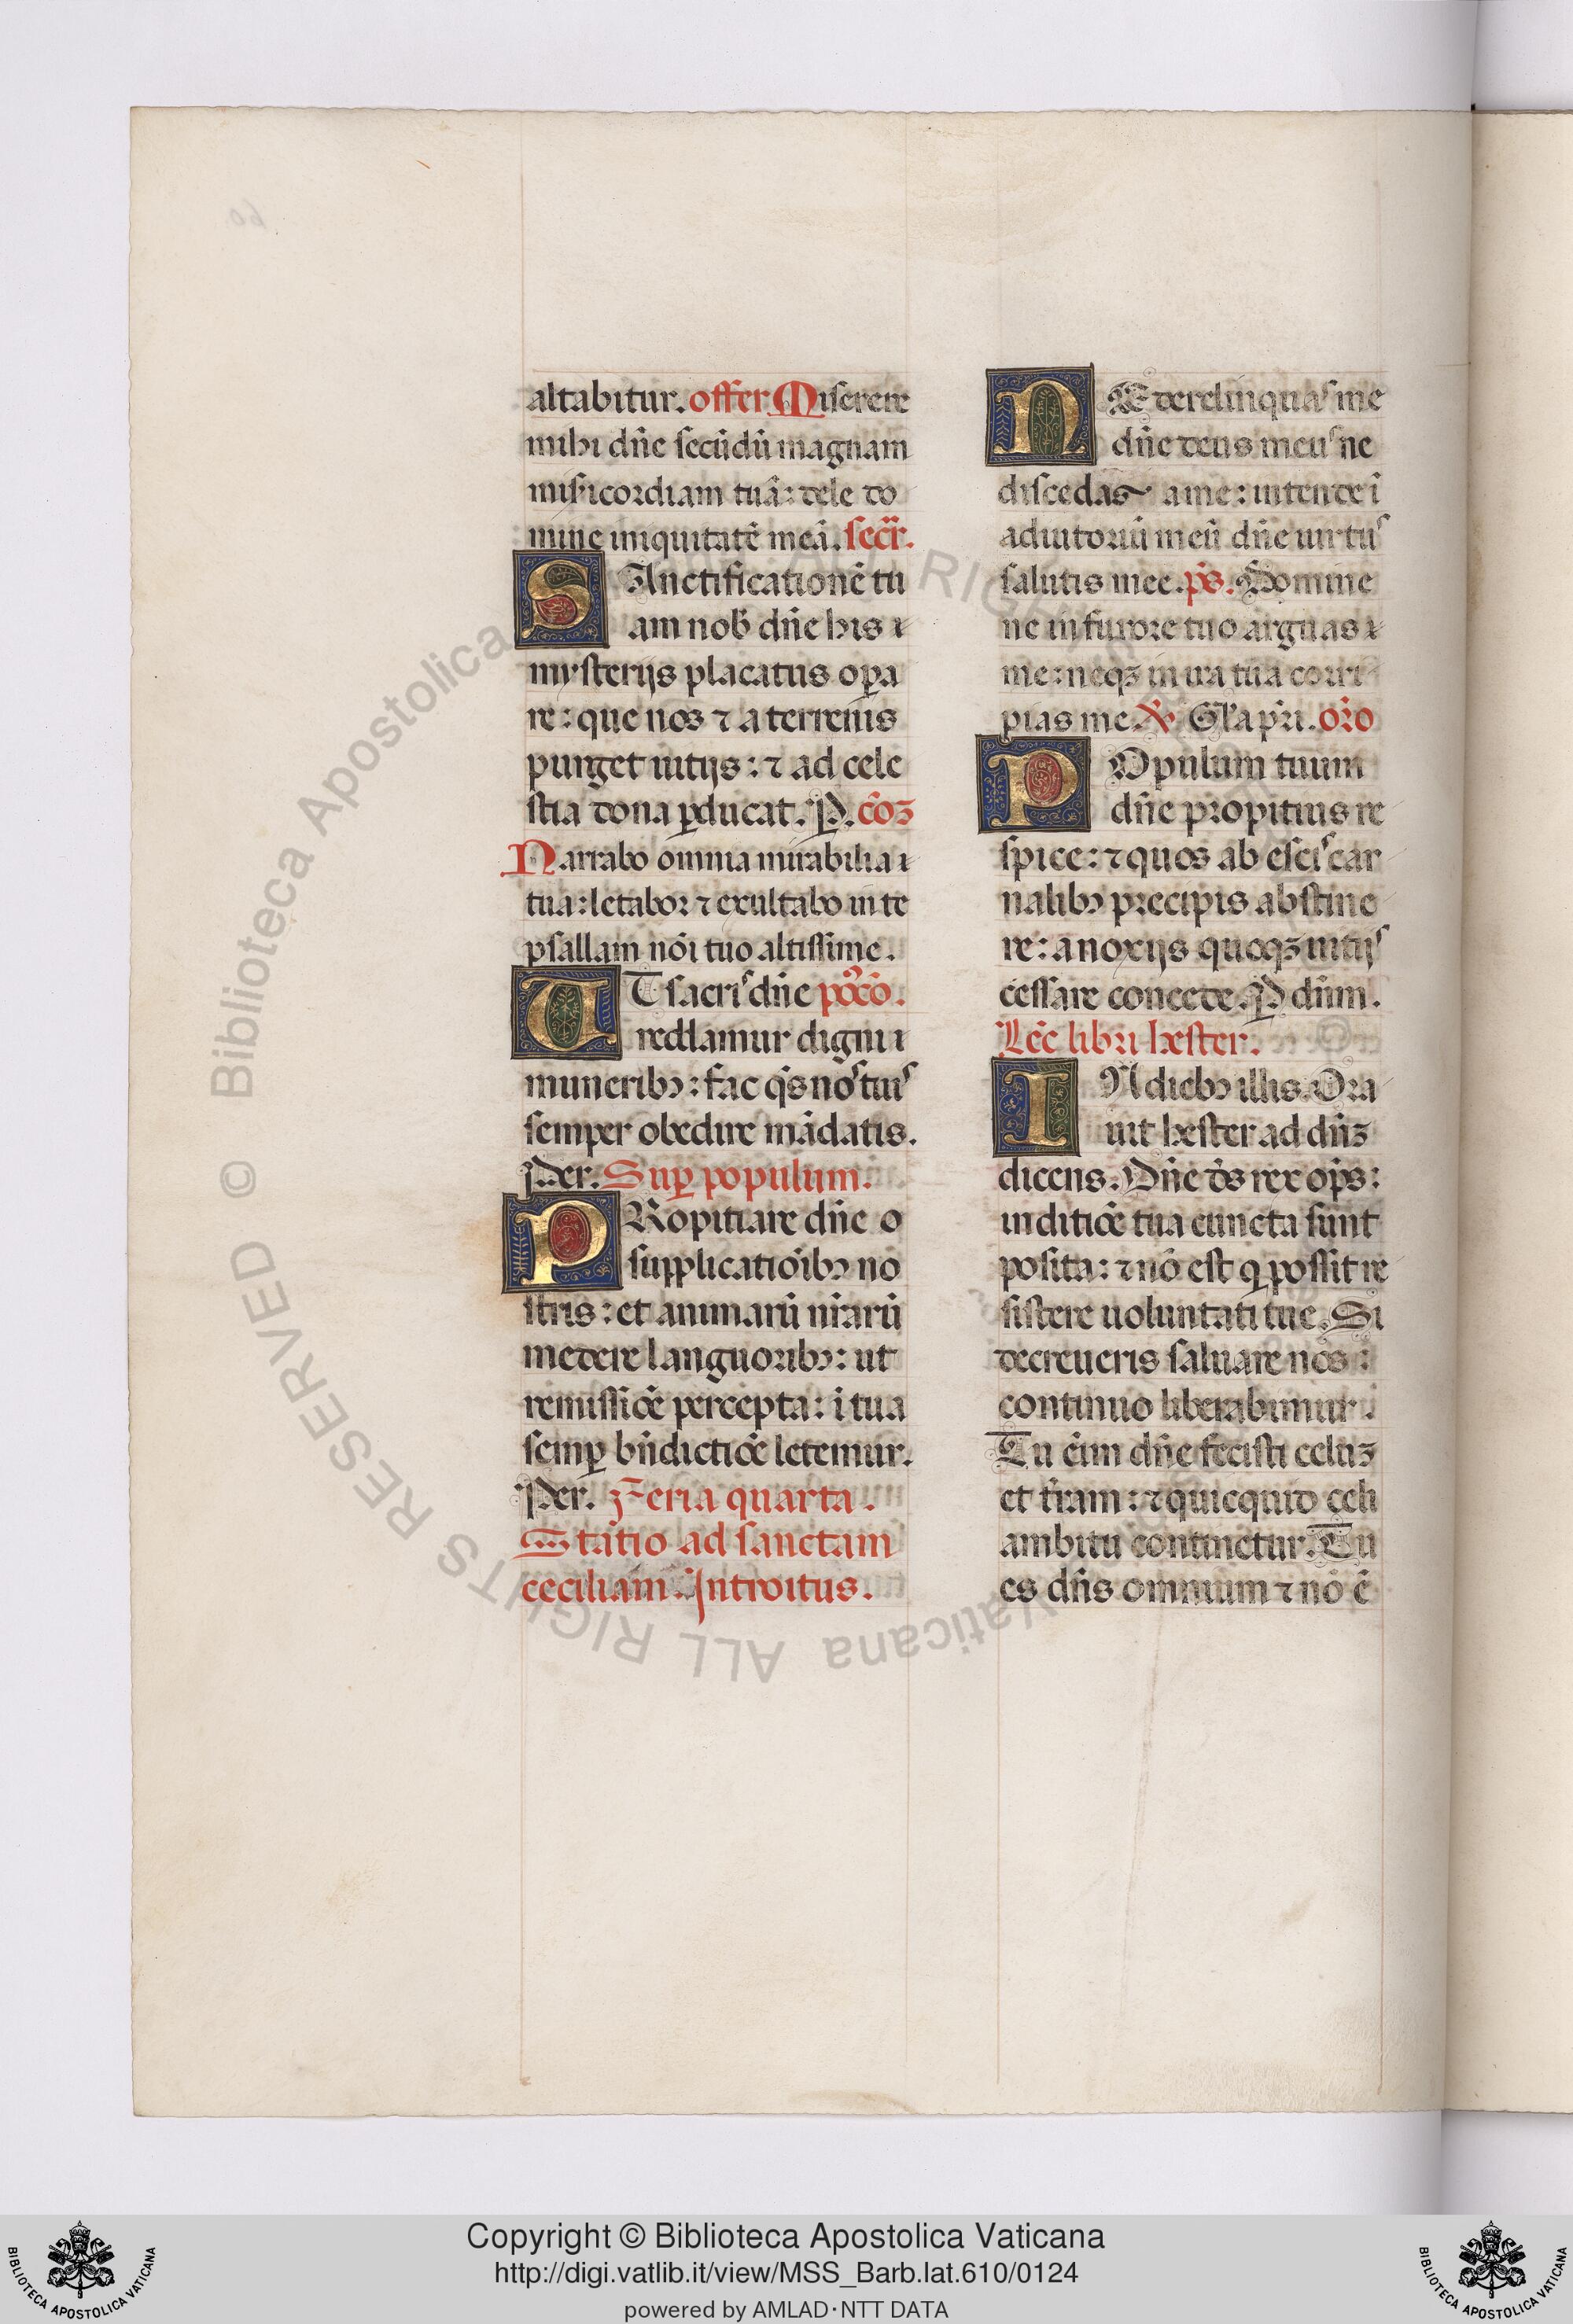 altabitur. offer Miserere
mihi dñe secūdū magnam
misericordiam tuā: dele do
mine iniquitatē meā. secr̄.
SAnctificationē tu
am nob̄ dñe his
mysterijs placatus opa
re: que nos ⁊ a terrenis
purget uitijs: ⁊ ad cele
stia dona ꝑducat. P. cōꝫ
Narrabo omnia mirabilia
tua: letabor ⁊ exultabo in te
psallam nōi tuo altissime.
UT sacris dñe pꝰcō.
reddamur digni
muneribꝰ: fac qs̄ nos tuis
semper obedire mādatis.
Per. Suꝑ populum.
PRopitiare dñe
supplicatiōibꝰ no
stris: et animarū nr̄arū
medere languoribꝰ: ut
remissiōe percepta: ī tua
semꝑ bn̄dictiōe letemur.
Per. Feria quarta.
Statio ad sanctam
ceciliam. Introitus.
NE derelinquas me
dñe deus meus ne
discedas a me: intende ī
adiutoriū meū dñe uirtus
salutis mee. ps̄. Domine
ne in furore tuo arguas
me: neqꝫ in ira tua corri
pias me. V. Gl'a pr̄i. or̄o
POpulum tuum
dñe propitius re
spice: ⁊ quos ab escis car
nalibꝰ precipis abstine
re: a noxijs quoqꝫ uitijs
cessare concede. P dn̄m.
Lec̄ libri hester.
IN diebꝰ illis. Ora
uit hester ad dn̄ꝫ
dicens. Dñe ds̄ rex op̄s:
in ditiōe tua cuncta sunt
posita: ⁊ nō est q possit re
sistere uoluntati tue. Si
decreueris saluare nos:
continuo liberabimur.
Tu ēim dñe fecisti celuꝫ
et t̄ram: ⁊ quicquid celi
ambitu continetur. Tu
es dn̄s omnium ⁊ nō ē
© Biblioteca Apostolica Vaticana ALL RIGHTS RESERVED
Copyright © Biblioteca Apostolica Vaticana
http://digi.vatlib.it/view/MSS_Barb.lat.610/0124
powered by AMLAD·NTT DATA
BIBLIOTECA APOSTOLICA VATICANA
BIBLIOTECA APOSTOLICA VATICANA